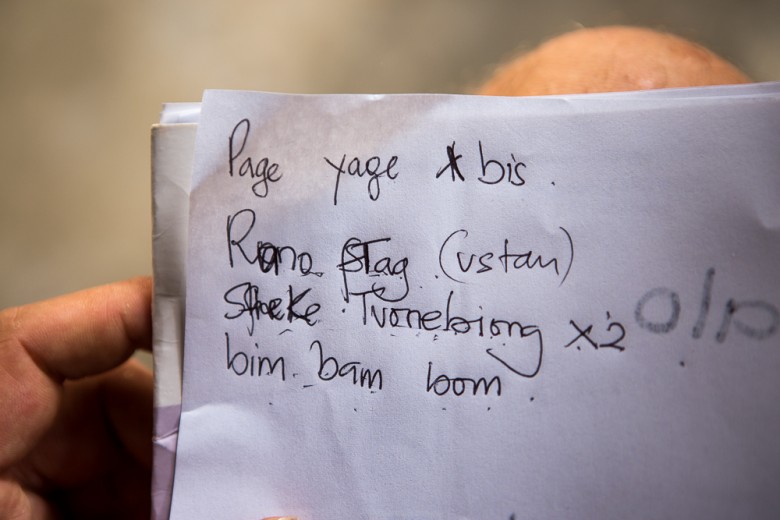 Page yage * bis.
Rono Stag (vstan)
Speke Tvonebiong x2
bim bam boom.